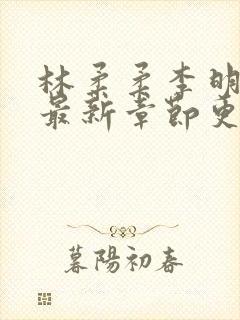 林柔柔李明
最新章節更
暮陽初春